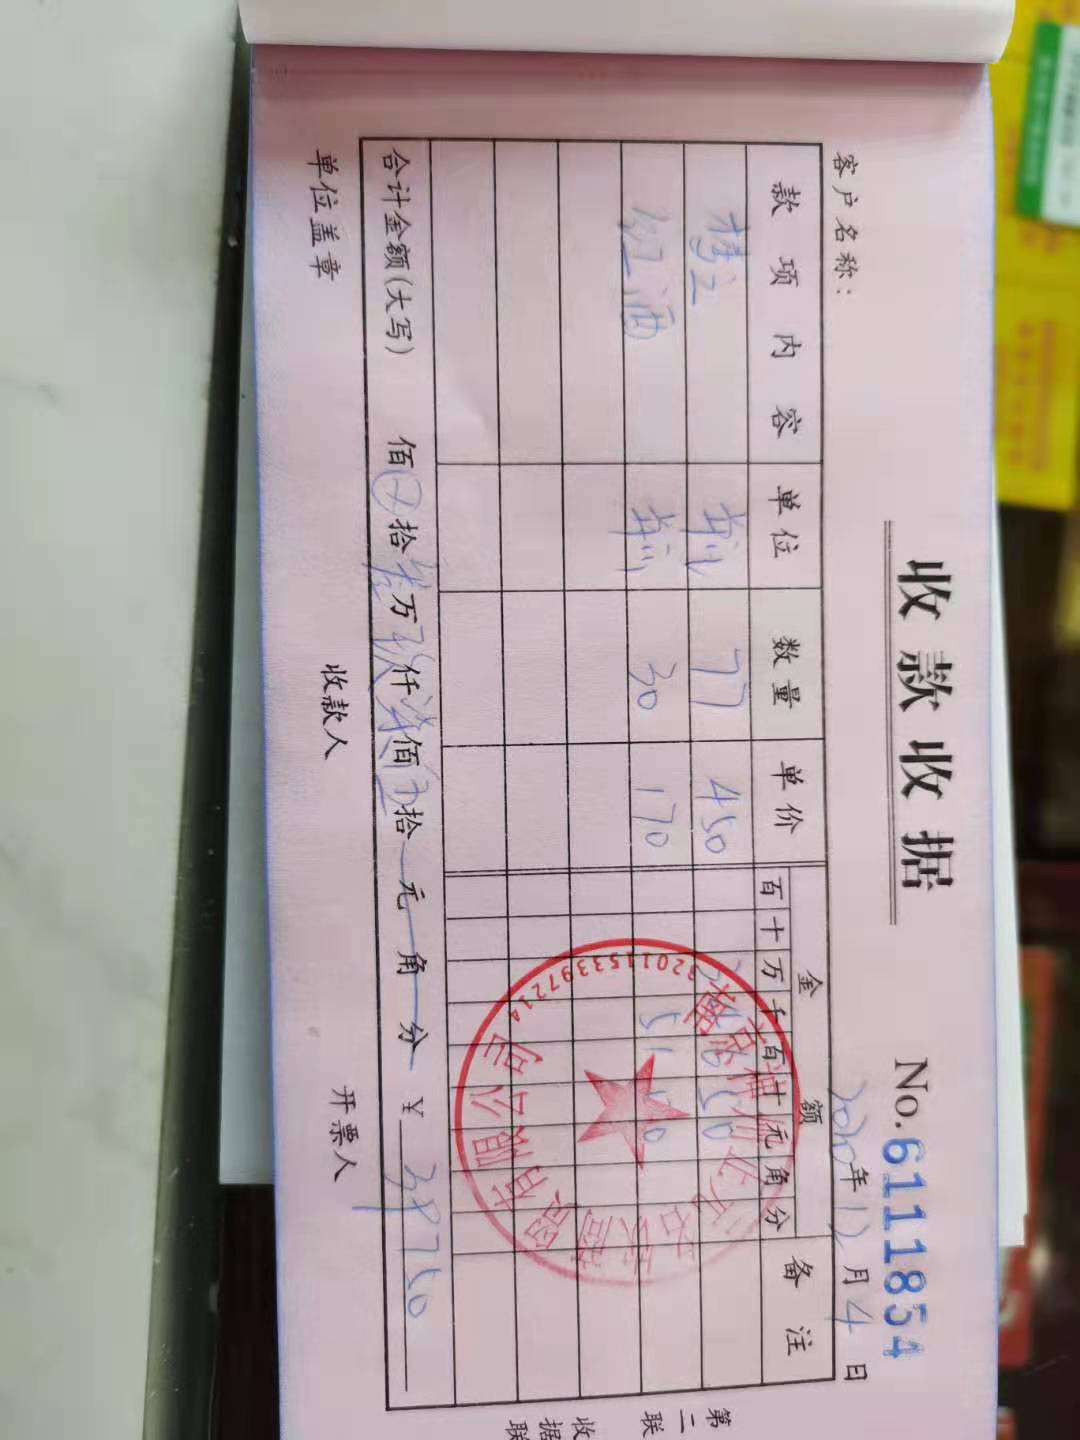 收款收据
No.6111854
客户名称：
2020年12月4日
款项内容 单位 数量 单价 金额 备注
百 十 万 千 百 十 元 角 分
77 450 34650
红酒 瓶 30 170 5100
合计金额(大写) 佰 拾 万 仟 佰 拾 元 角 分 ¥ 39750
单位盖章 收款人 开票人
第二联 收据联
3201153397214
有限公司